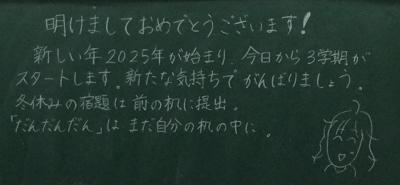 明けましておめでとうございます!
新しい年2025年が始まり、今日から3学期が
スタートします。新たな気持ちでがんばりましょう。
冬休みの宿題は前の机に提出。
「だんだんだん」はまだ自分の机の中に。